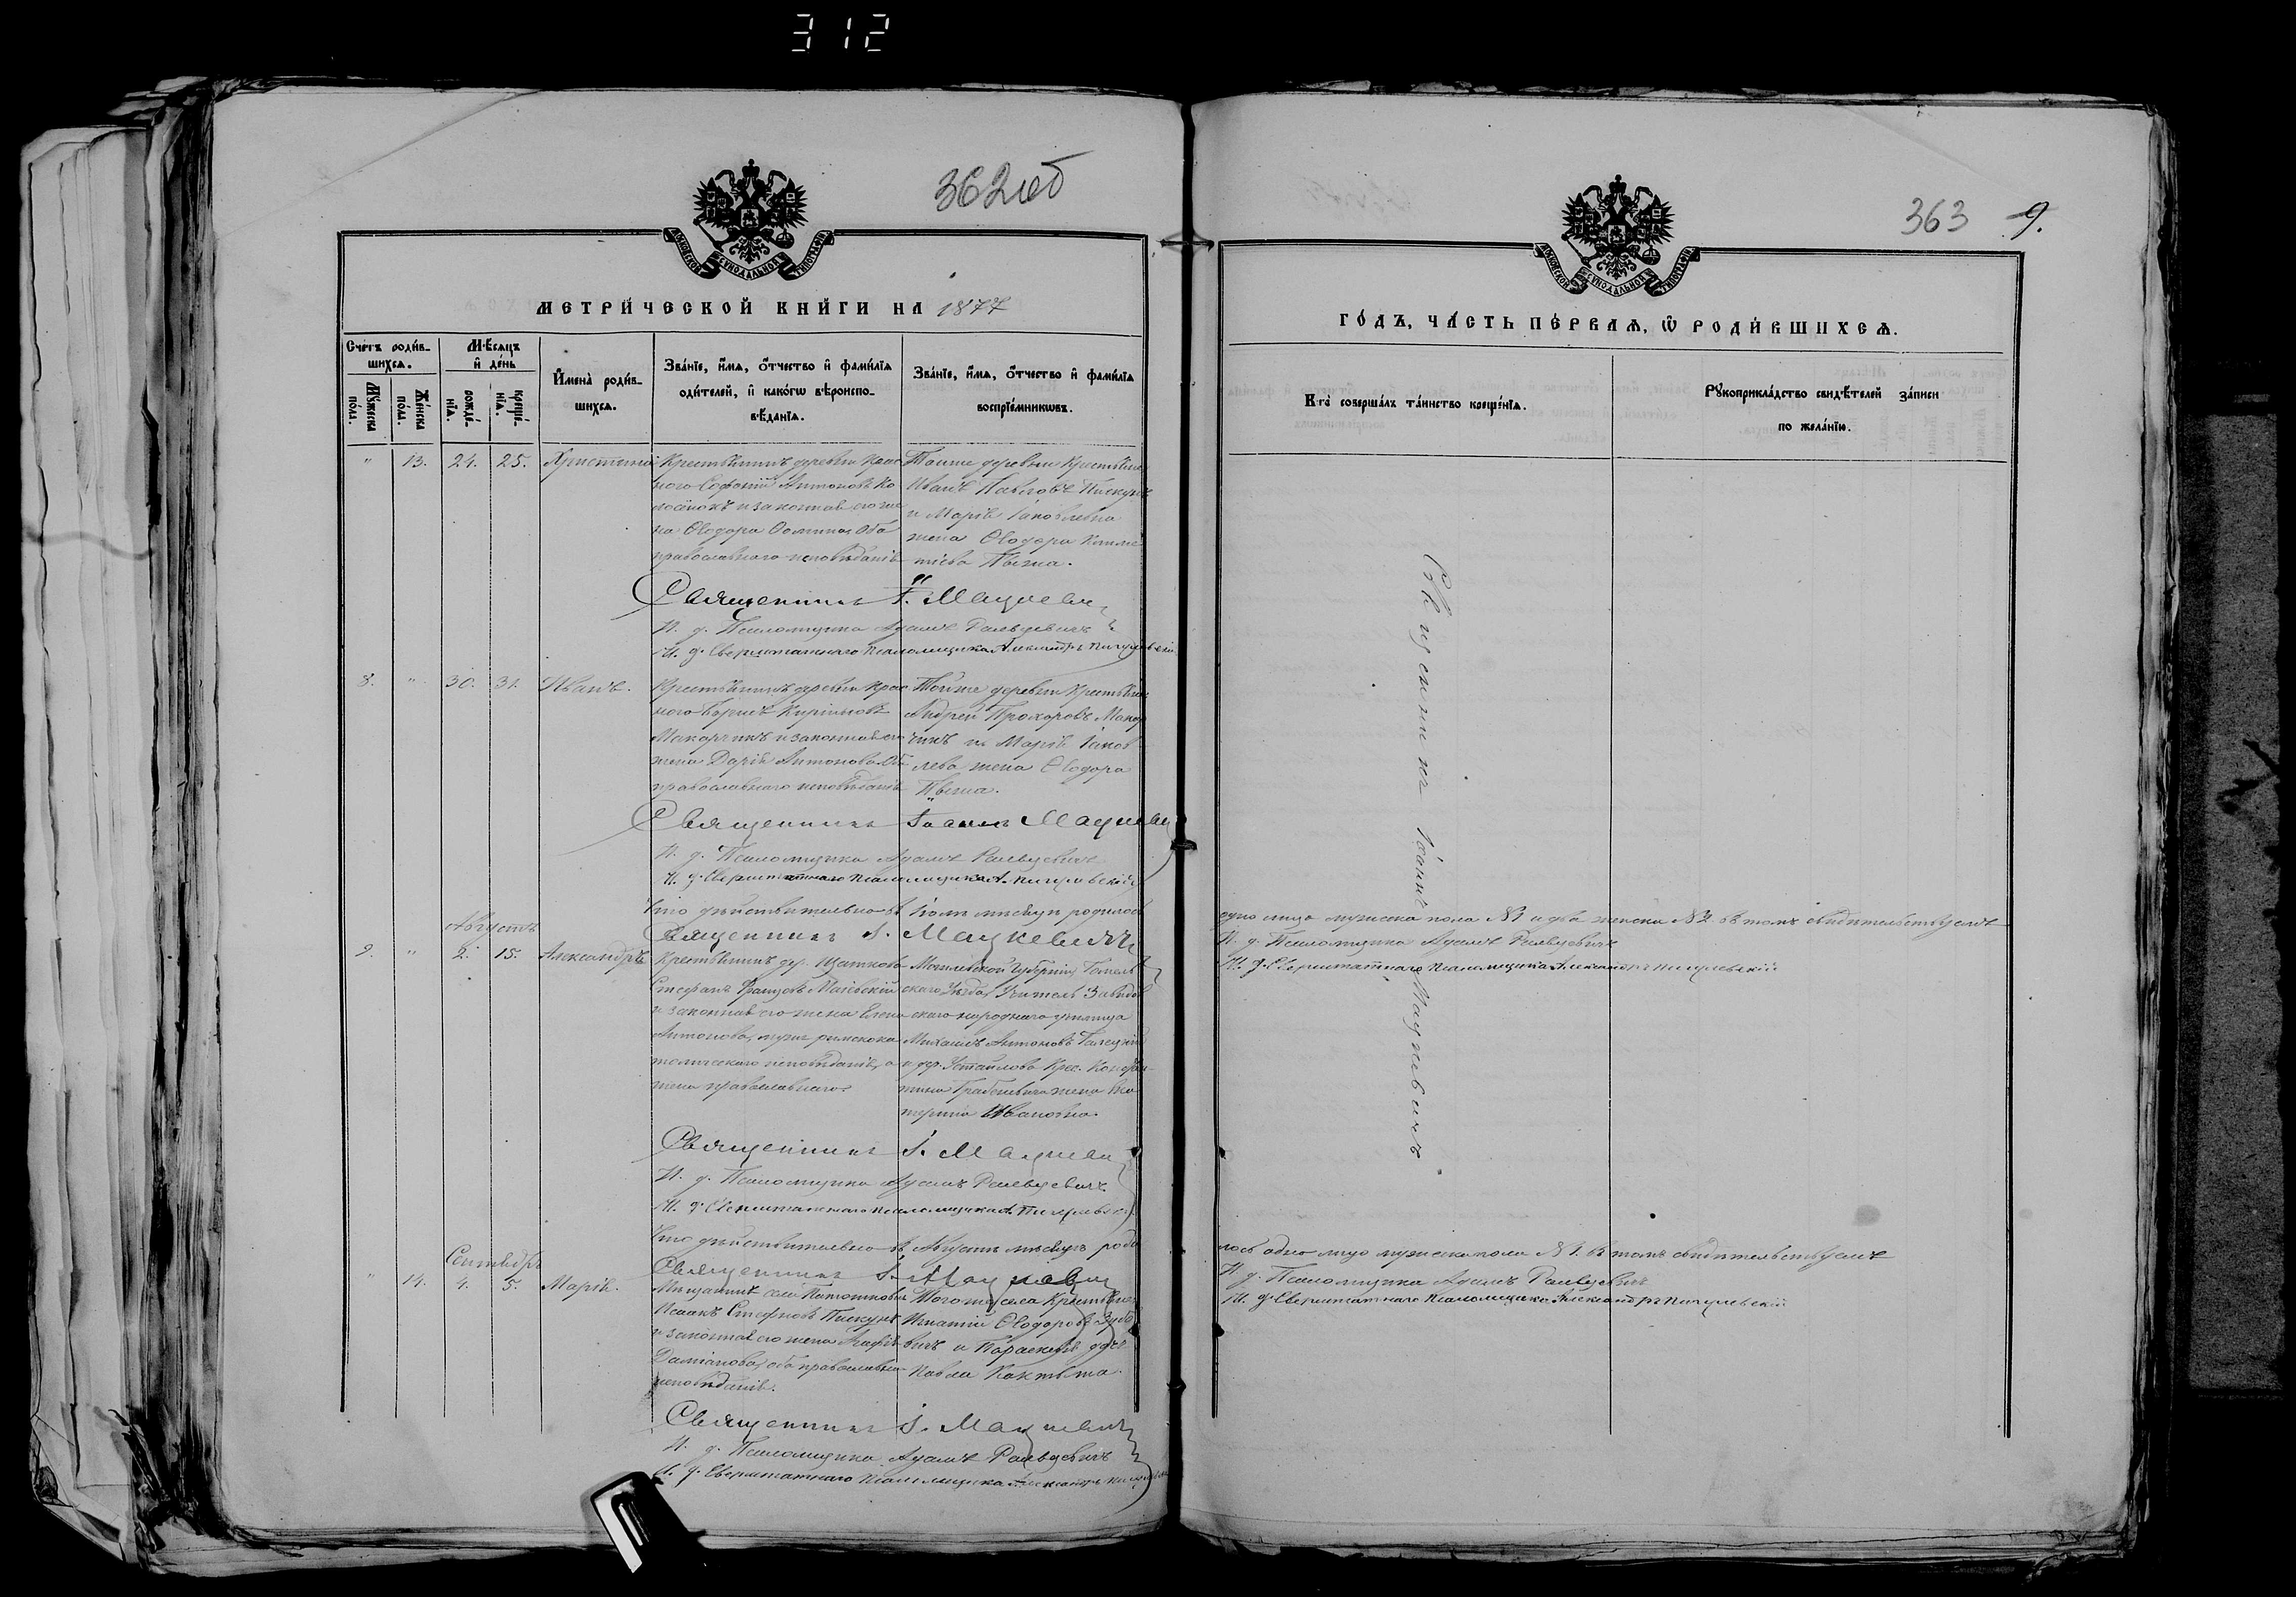 312
362об
МОСКОВСКОЙ СѴНОДАЛЬНОЙ ТИПОГРАФІИ
МЕТРИ́ЧЕСКОЙ КНИ́ГИ НА 1877
Сче́тъ роди́в-
шихсѧ.
Мѣ́сѧцъ
и҆ де́нь
Мꙋ́жеска
по́ла.
Же́нска
по́ла.
рожде́-
нїѧ.
креще́-
нїѧ.
И҆мена̀ роди́в-
шихсѧ.
Зва́нїе, и҆́мѧ, ѻ҆́тчество и҆ фами́лїѧ
оди́телей, и҆ како́гѡ вѣроиспо-
вѣ́данїѧ.
Зва́нїе, и҆́мѧ, ѻ҆́тчество и҆ фами́лїѧ
воспрїе́мникѡвъ.
" 13. 24. 25. Христина
Крестьянинъ деревни Крас
ного Софоній Антоновъ Ко
и законная его же
на Ѳеодора Ѳомина Оба
православнаго исповѣданія
Тойже деревни Крестьянинъ
Иванъ Павловъ Пискунъ
и Марія Іаковлевна
жена Ѳеодора
Священникъ І. Мацкевичъ
И. д. Псаломщика Адамъ Ралвцевичъ
И. д. Сверхштатнаго псаломщика Александръ Пигулевскій
8. " 30. 31. Иванъ.
Крестьянинъ деревни Крас
ного Борисъ Кириловъ
Макарчикъ и законная его
жена Дарія Антонова Оба
православнаго исповѣданія
Тойже деревни Крестьянинъ
Андрей Прохоровъ Макар
чикъ и Марія Іаков
лева жена Ѳеодора
Священникъ Іоаннъ Мацкевичъ
И. д. Псаломщика Адамъ Ралвцевичъ
И. д. Сверхштатнаго псаломщика А. Пигулевскій
Что дѣйствительно въ Іюлѣ мѣсяцѣ родилось
Священникъ І. Мацкевичъ
Августъ
9. " 2. 15. Александръ
Крестьянинъ дер.
Стефанъ Францовъ
и законная его жена Елена
Антонова, мужъ римскока
толическаго исповѣданія, а
жена православнаго.
Могилевской Губерніи Гомель
скаго Уѣзда, Учитель
скаго народнаго училища
Михаилъ Антоновъ
и дер. Крес.
жена Ека
терина Ивановна.
Священникъ І. Мацкевичъ
И. д. Псаломщика Адамъ Ралвцевичъ
И. д. Сверхштатнаго псаломщика А. Пигулевскій
Что дѣйствительно въ Августѣ мѣсяцѣ роди
Священникъ І. Мацкевичъ
Сентябрь
" 14. 4. 5. Марія.
Мѣщанинъ села
Исаакъ Стефановъ Пискунъ
и законная его жена
Даміанова, оба православна
исповѣданія.
Тогоже села Крестьянинъ
Игнатій Ѳеодоровъ
вичъ и Параскева
Павла
Священникъ І. Мацкевичъ
И. д. Псаломщика Адамъ Ралвцевичъ
И. д. Сверхштатнаго псаломщика Александръ
363 9.
МОСКОВСКОЙ СѴНОДАЛЬНОЙ ТИПОГРАФІИ
ГО́ДЪ, ЧА́СТЬ ПЕ́РВАѦ, Ѡ҆ РОДИ́ВШИХСѦ.
Кто̀ соверша́лъ та́инство креще́нїѧ.
Рꙋкоприкла́дство свидѣ́телей за́писи
по жела́нїю.
Священникъ Іоаннъ Мацкевичъ
одно лицо мужеска пола № 1 и два женска № 2. въ томъ свидѣтельствуемъ
И. д. Псаломщика Адамъ Ралвцевичъ
И. д. Сверхштатнаго псаломщика Александръ Пигулевскій
лось одно лицо мужеска пола № 1. въ томъ свидѣтельствуемъ
И. д. Псаломщика Адамъ Ралвцевичъ
И. д. Сверхштатнаго псаломщика Александръ Пигулевскій